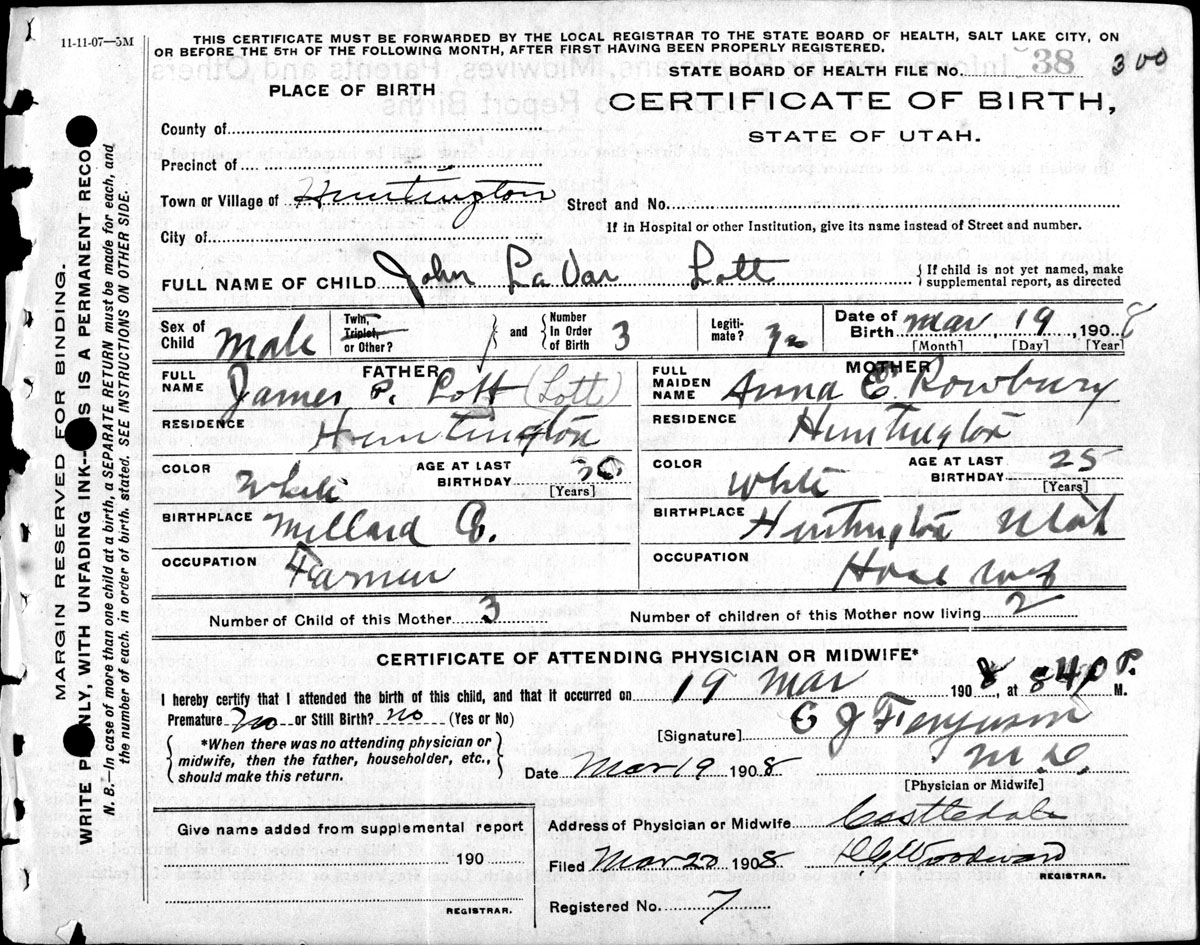 11-11-07—5M
THIS CERTIFICATE MUST BE FORWARDED BY THE LOCAL REGISTRAR TO THE STATE BOARD OF HEALTH, SALT LAKE CITY, ON
OR BEFORE THE 5TH OF THE FOLLOWING MONTH, AFTER FIRST HAVING BEEN PROPERLY REGISTERED.
STATE BOARD OF HEALTH FILE NO. 38 300
PLACE OF BIRTH
CERTIFICATE OF BIRTH,
STATE OF UTAH.
County of
Precinct of
Town or Village of Huntington Street and No.
If in Hospital or other Institution, give its name instead of Street and number.
City of
FULL NAME OF CHILD John LaVar Lott { If child is not yet named, make supplemental report, as directed
Sex of Child Male Twin, Triplet, or Other? and Number In Order of Birth 3 Legiti-mate? Date of Birth Mar 19, 1908
[Month] [Day] [Year]
FATHER
FULL NAME James P. Lott (Lott)
RESIDENCE Huntington
COLOR White AGE AT LAST BIRTHDAY [Years]
BIRTHPLACE Millard Co.
OCCUPATION Farmer
MOTHER
FULL MAIDEN NAME Anna E. Rowbury
RESIDENCE Huntington
COLOR White AGE AT LAST BIRTHDAY 25 [Years]
BIRTHPLACE Huntington Utah
OCCUPATION
Number of Child of this Mother 3 Number of children of this Mother now living 2
CERTIFICATE OF ATTENDING PHYSICIAN OR MIDWIFE*
I hereby certify that I attended the birth of this child, and that it occurred on 19 Mar 1908, at 840 P. M.
Premature No or Still Birth? no (Yes or No)
[Signature] E J Ferguson
M.D.
[Physician or Midwife]
{ *When there was no attending physician or midwife, then the father, householder, etc., should make this return. }
Date Mar 19 1908
Give name added from supplemental report
190
REGISTRAR.
Address of Physician or Midwife Castledale
Filed Mar 20 1908 Woodward
REGISTRAR.
Registered No. 7
MARGIN RESERVED FOR BINDING.
WRITE PLAINLY, WITH UNFADING INK—THIS IS A PERMANENT RECORD
N. B.—In case of more than one child at a birth, a SEPARATE RETURN must be made for each, and
the number of each, in order of birth, stated. SEE INSTRUCTIONS ON OTHER SIDE.